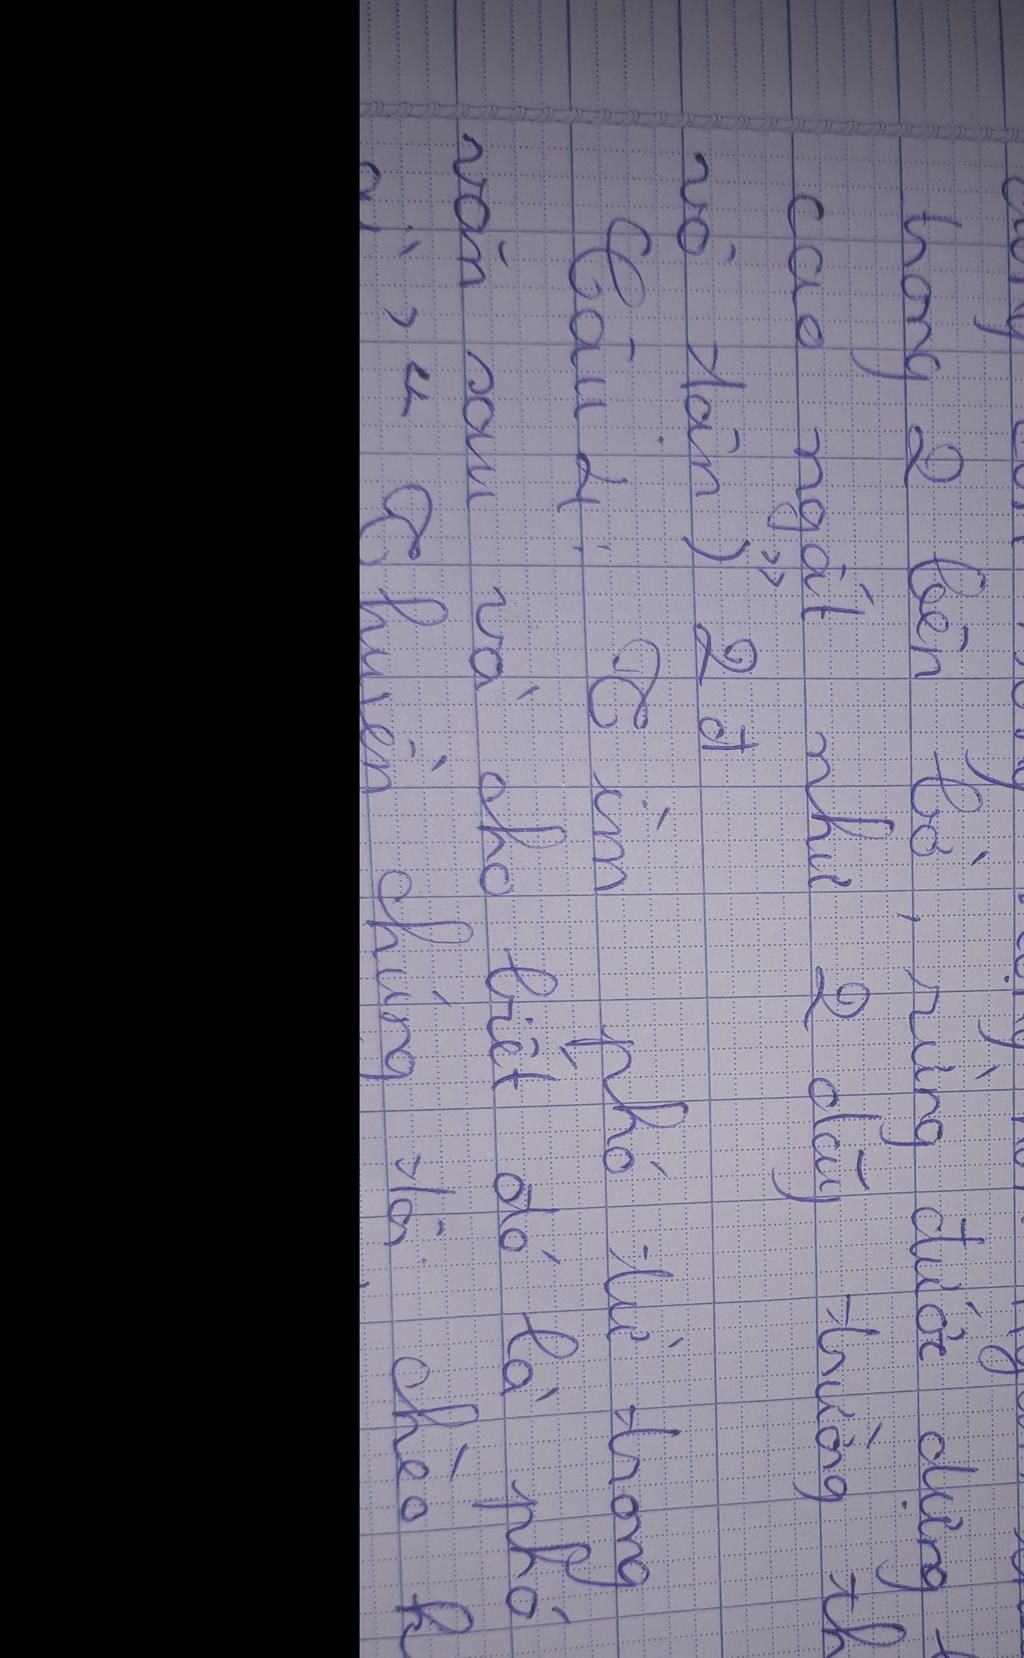 trong 2 bên bờ, rừng đước dựng
cao ngất như 2 dãy trường th
vô tận)" 2đ
Câu 4: Tìm phó từ trong
văn sau và cho biết đó là phó
gì? " Thuyền chúng tôi chèo